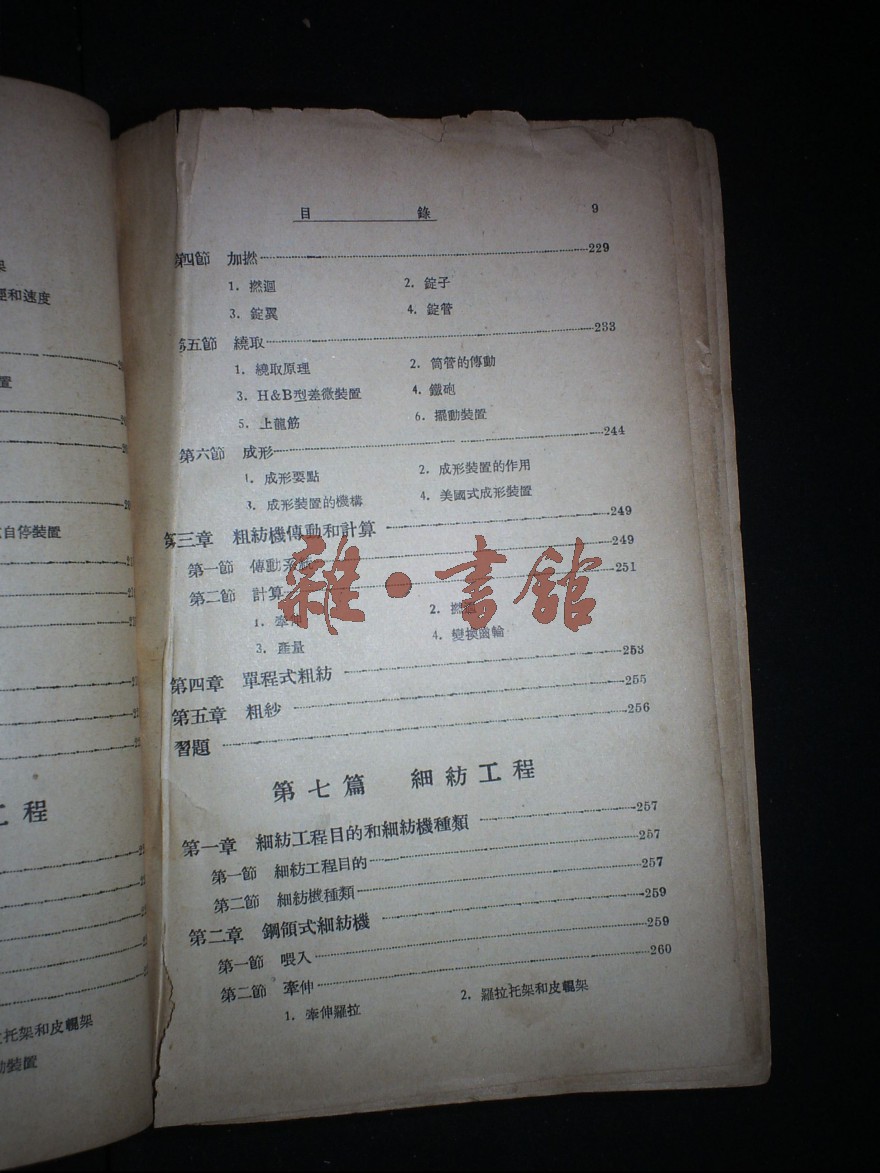 架
和速度
置
自停裝置
工程
托架和皮輥架
動裝置
目 錄 9
第四節 加撚 229
1. 撚迴 2. 錠子
3. 錠翼 4. 錠管
第五節 繞取 233
1. 繞取原理 2. 筒管的傳動
3. H&B型差微裝置 4. 鐵砲
5. 上龍筋 6. 擺動裝置
第六節 成形 244
1. 成形要點 2. 成形裝置的作用
3. 成形裝置的機構 4. 美國式成形裝置
第三章 粗紡機傳動和計算 249
第一節 傳動系統 249
第二節 計算 251
1. 牽伸 2. 撚
3. 產量 4. 變換齒輪
第四章 單程式粗紡 253
第五章 粗紗 255
習題 256
第七篇 細紡工程
第一章 細紡工程目的和細紡機種類 257
第一節 細紡工程目的 257
第二節 細紡機種類 257
第二章 鋼領式細紡機 259
第一節 喂入 259
第二節 牽伸 260
1. 牽伸羅拉 2. 羅拉托架和皮輥架
雜·書館